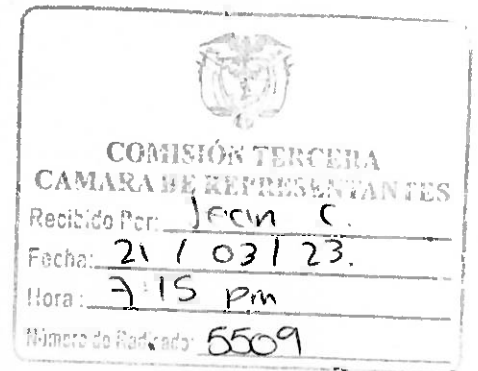 COMISIÓN TERCERA
CAMARA DE REPRESENTANTES
Recibido Por: Jean C.
Fecha: 21 / 03 / 23.
Hora: 7:15 pm
Número de Radicado: 5509